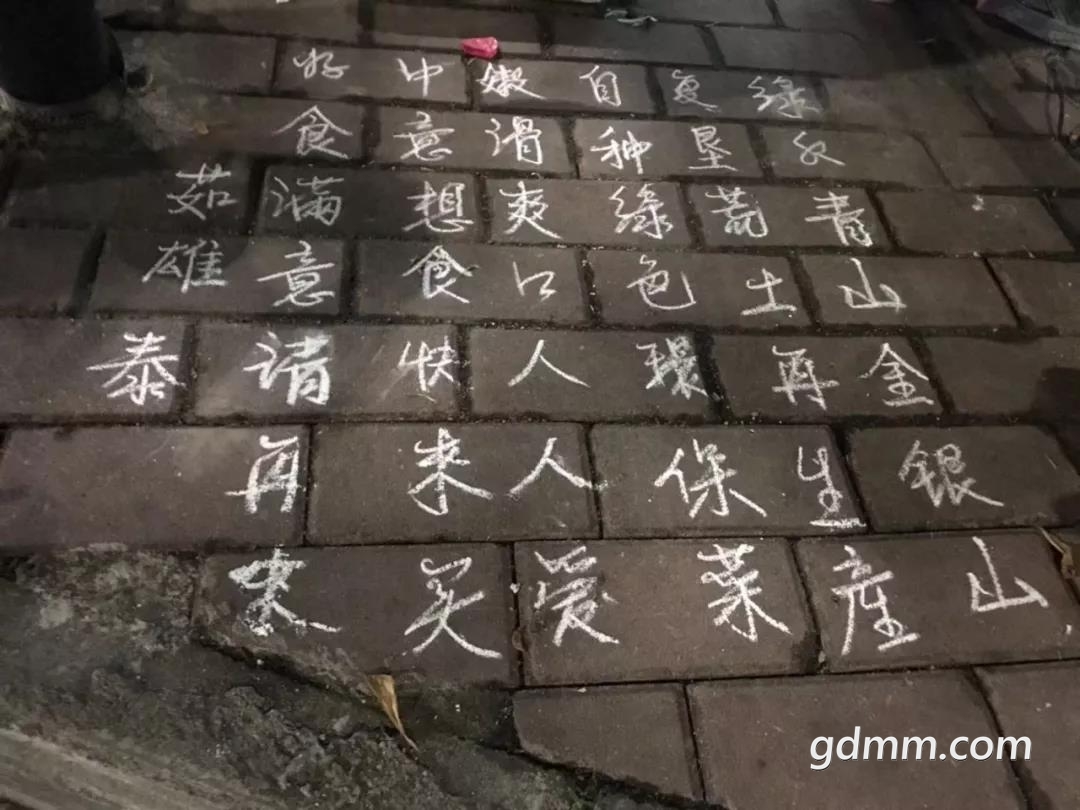 绿水青山金银山
复垦荒土再生産
自种绿色環保菜
嫩滑爽口人人爱
中意想食快来买
好食满意请再来
茹雄泰
gdmm.com